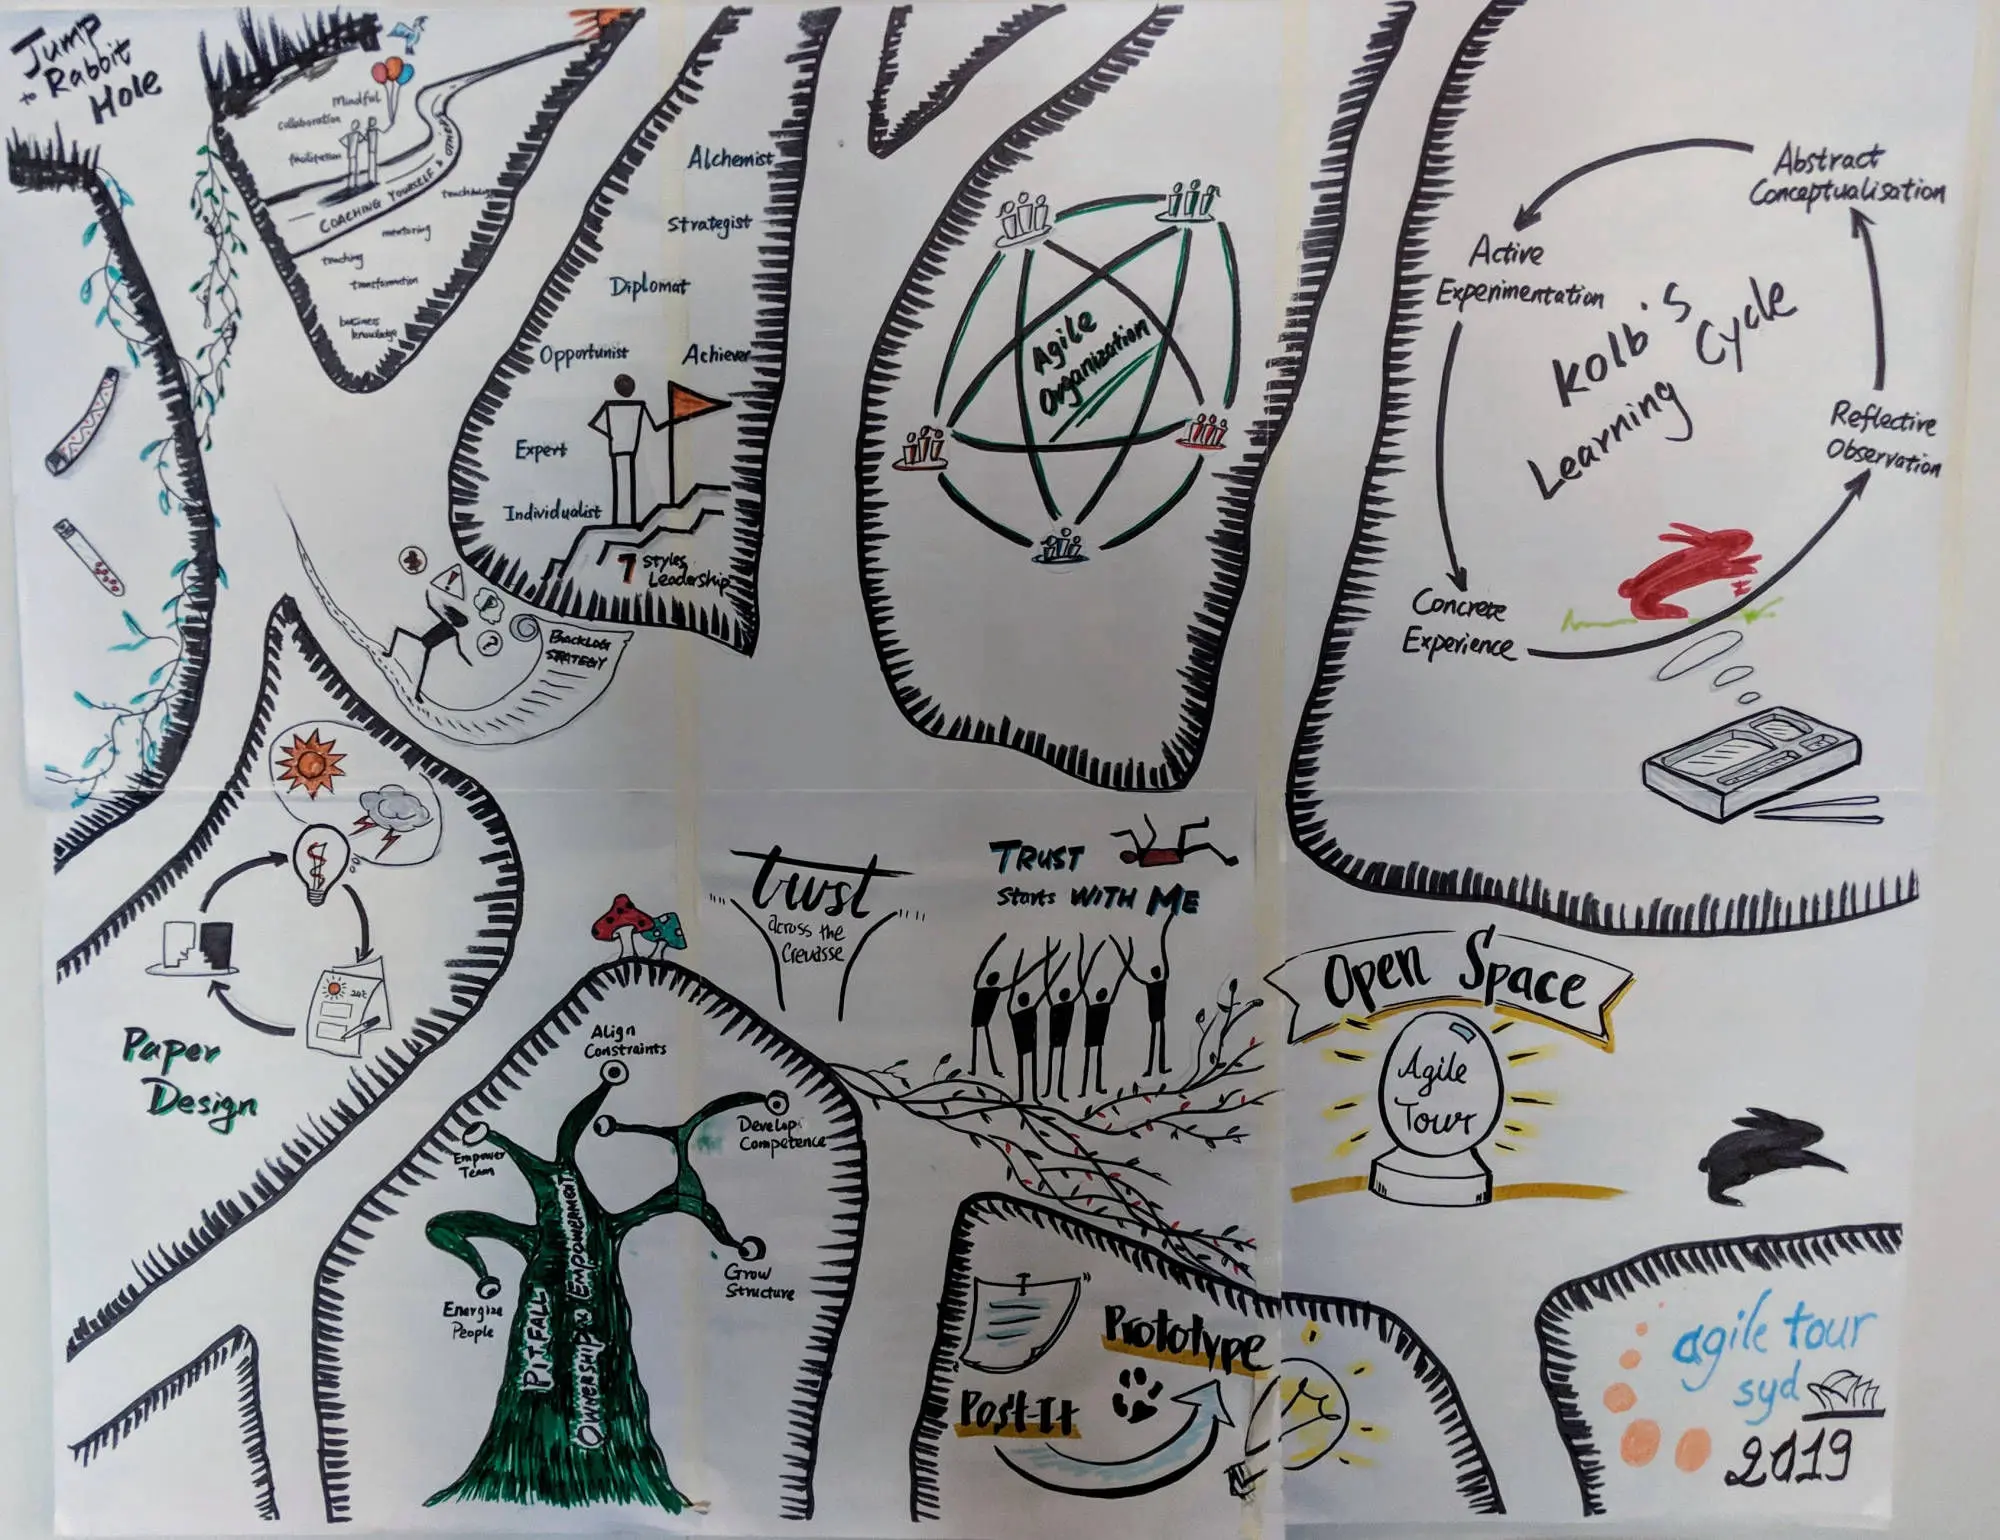 Jump
to Rabbit
Hole
Mindful
collaboration
facilitation
COACHING YOURSELF & OTHERS
teaching
mentoring
transformation
business
knowledge
Alchemist
Strategist
Diplomat
Opportunist
Achiever
Expert
Individualist
7 Styles
Leadership
BACKLOG
STRATEGY
Agile
Organization
Abstract
Conceptualisation
Active
Experimentation
Kolb's
Learning Cycle
Reflective
Observation
Concrete
Experience
Paper
Design
trust
across the
Crevasse
TRUST
starts WITH ME
Open Space
Agile
Tour
Align
Constraints
Empower
Team
Develop
Competence
Energize
People
Grow
Structure
PITFALL
OWNERSHIP EMPOWERMENT
Prototype
Post-It
agile tour
syd
2019